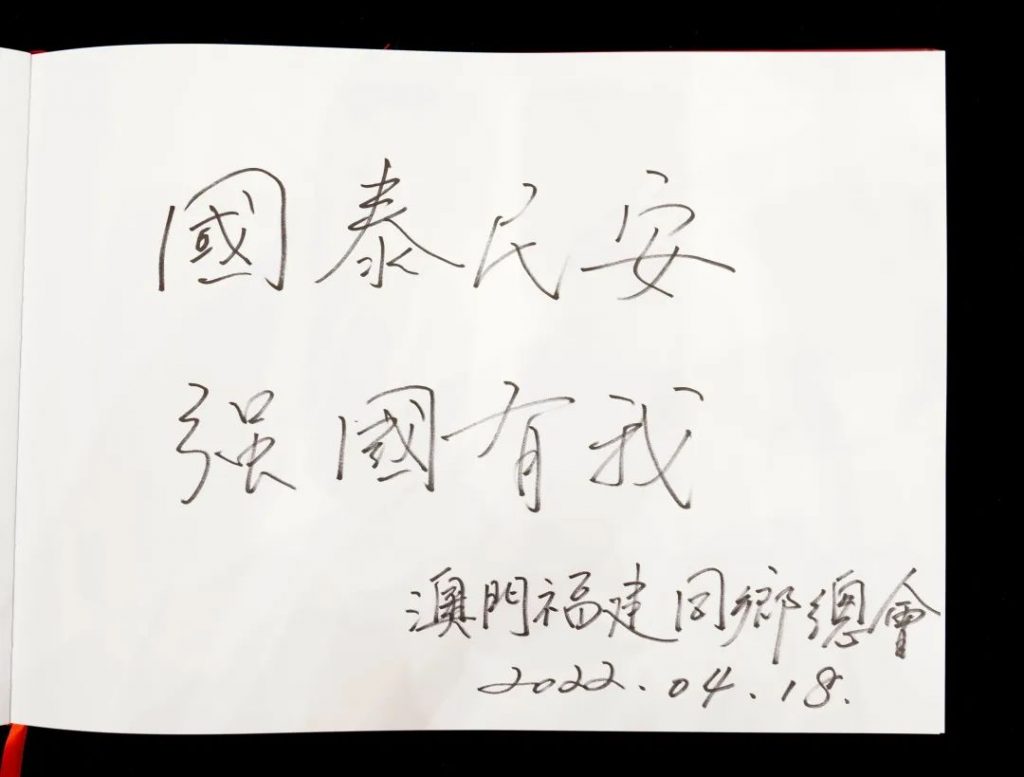 國泰民安
强國有我
澳門福建同鄉總會
2022.04.18.